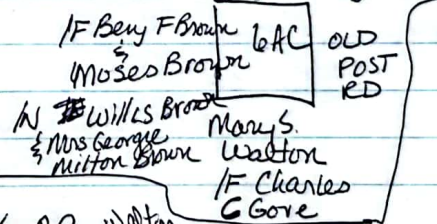 /F Benj F Brown
&
Moses Brown
6AC
OLD
POST
RD
/N Willis Brown
& Mrs Georgie
Milton Brown
Mary S.
Walton
/F Charles
C Gore
Walton